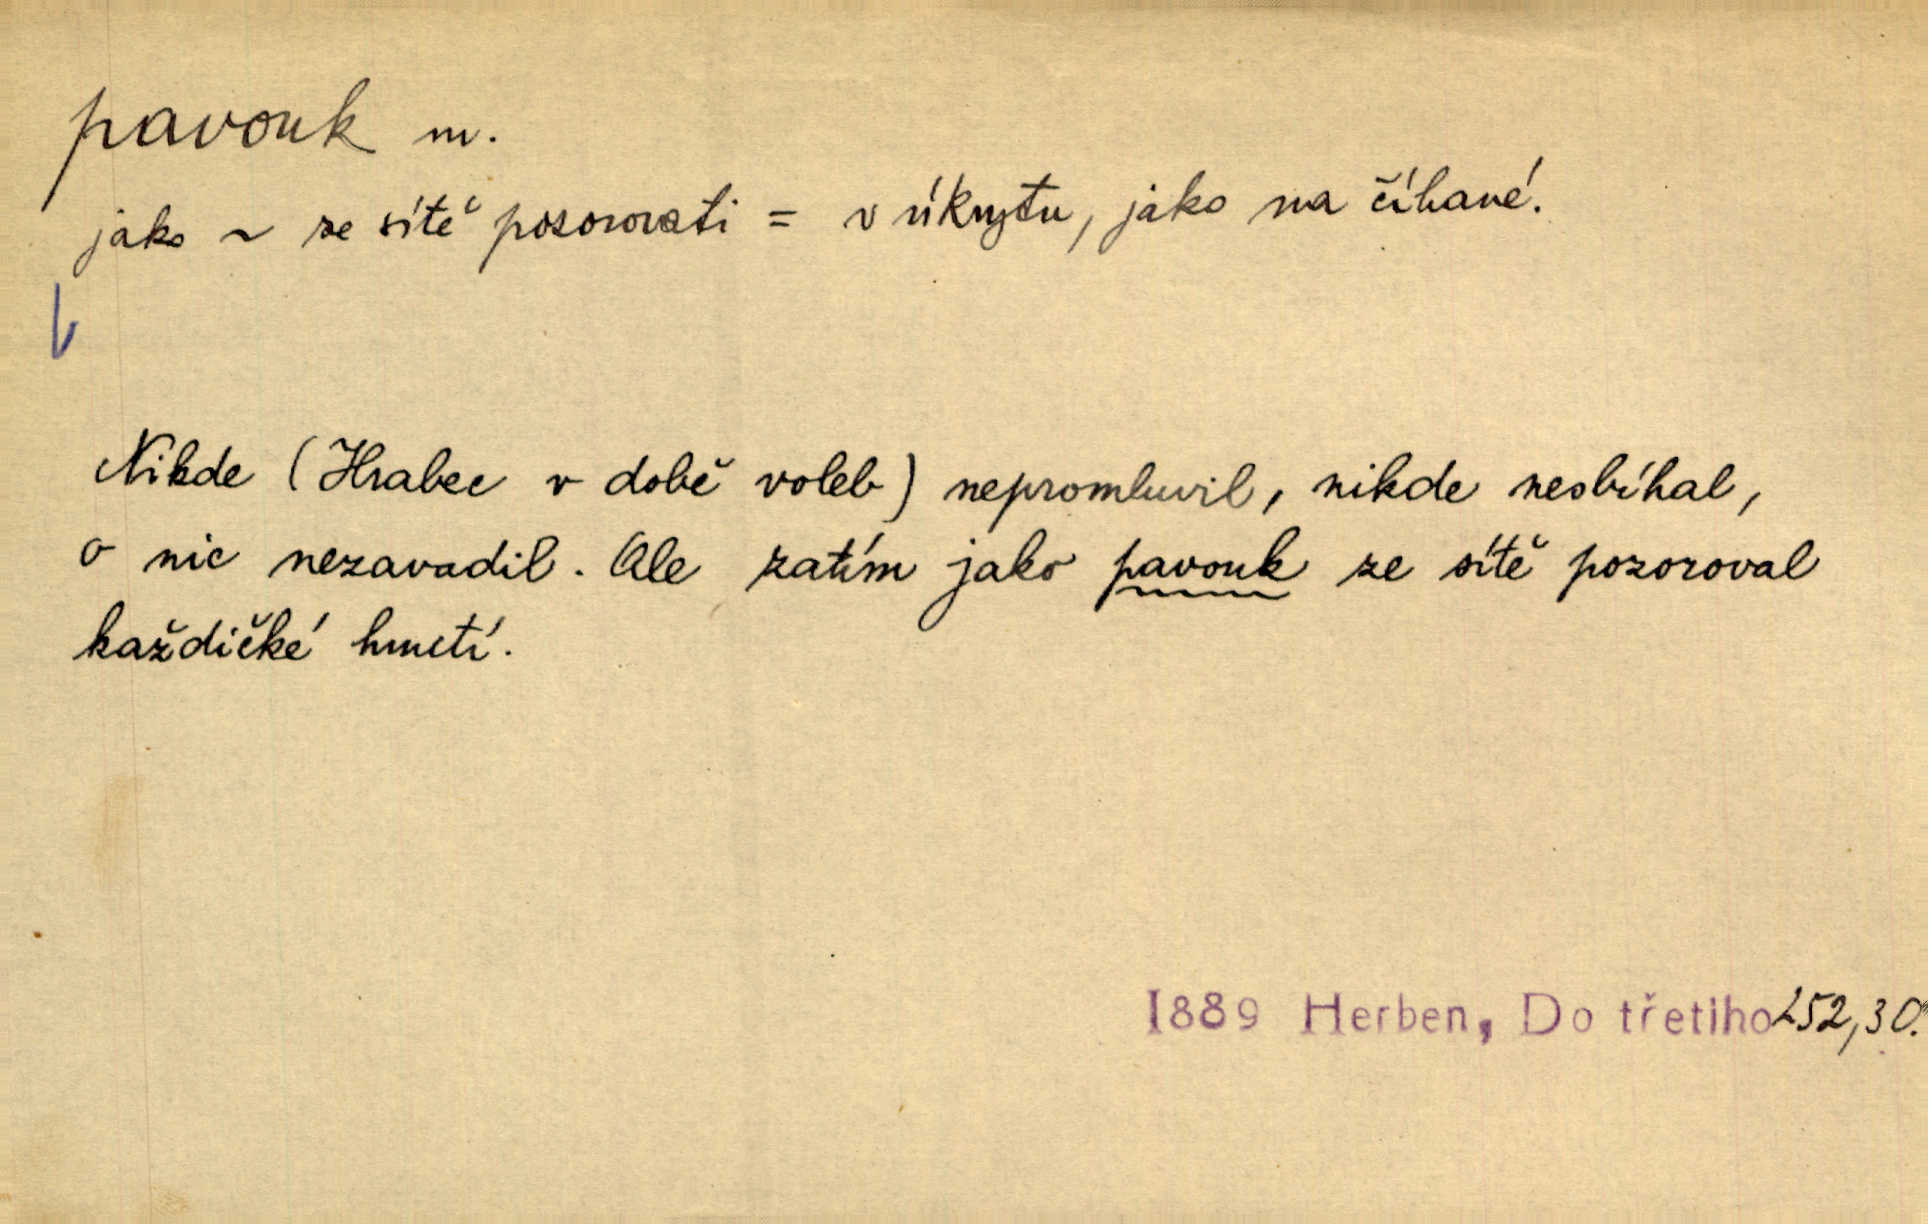 pavouk m.
jako ~ ze sítě pozorovati = v úkrytu, jako na číhané.
Nikde (Hrabec v době voleb) nepromluvil, nikde nesbíhal,
o nic nezavadil. Ale zatím jako pavouk ze sítě pozoroval
každičké hnutí.
1889 Herben, Do třetího 252,30.